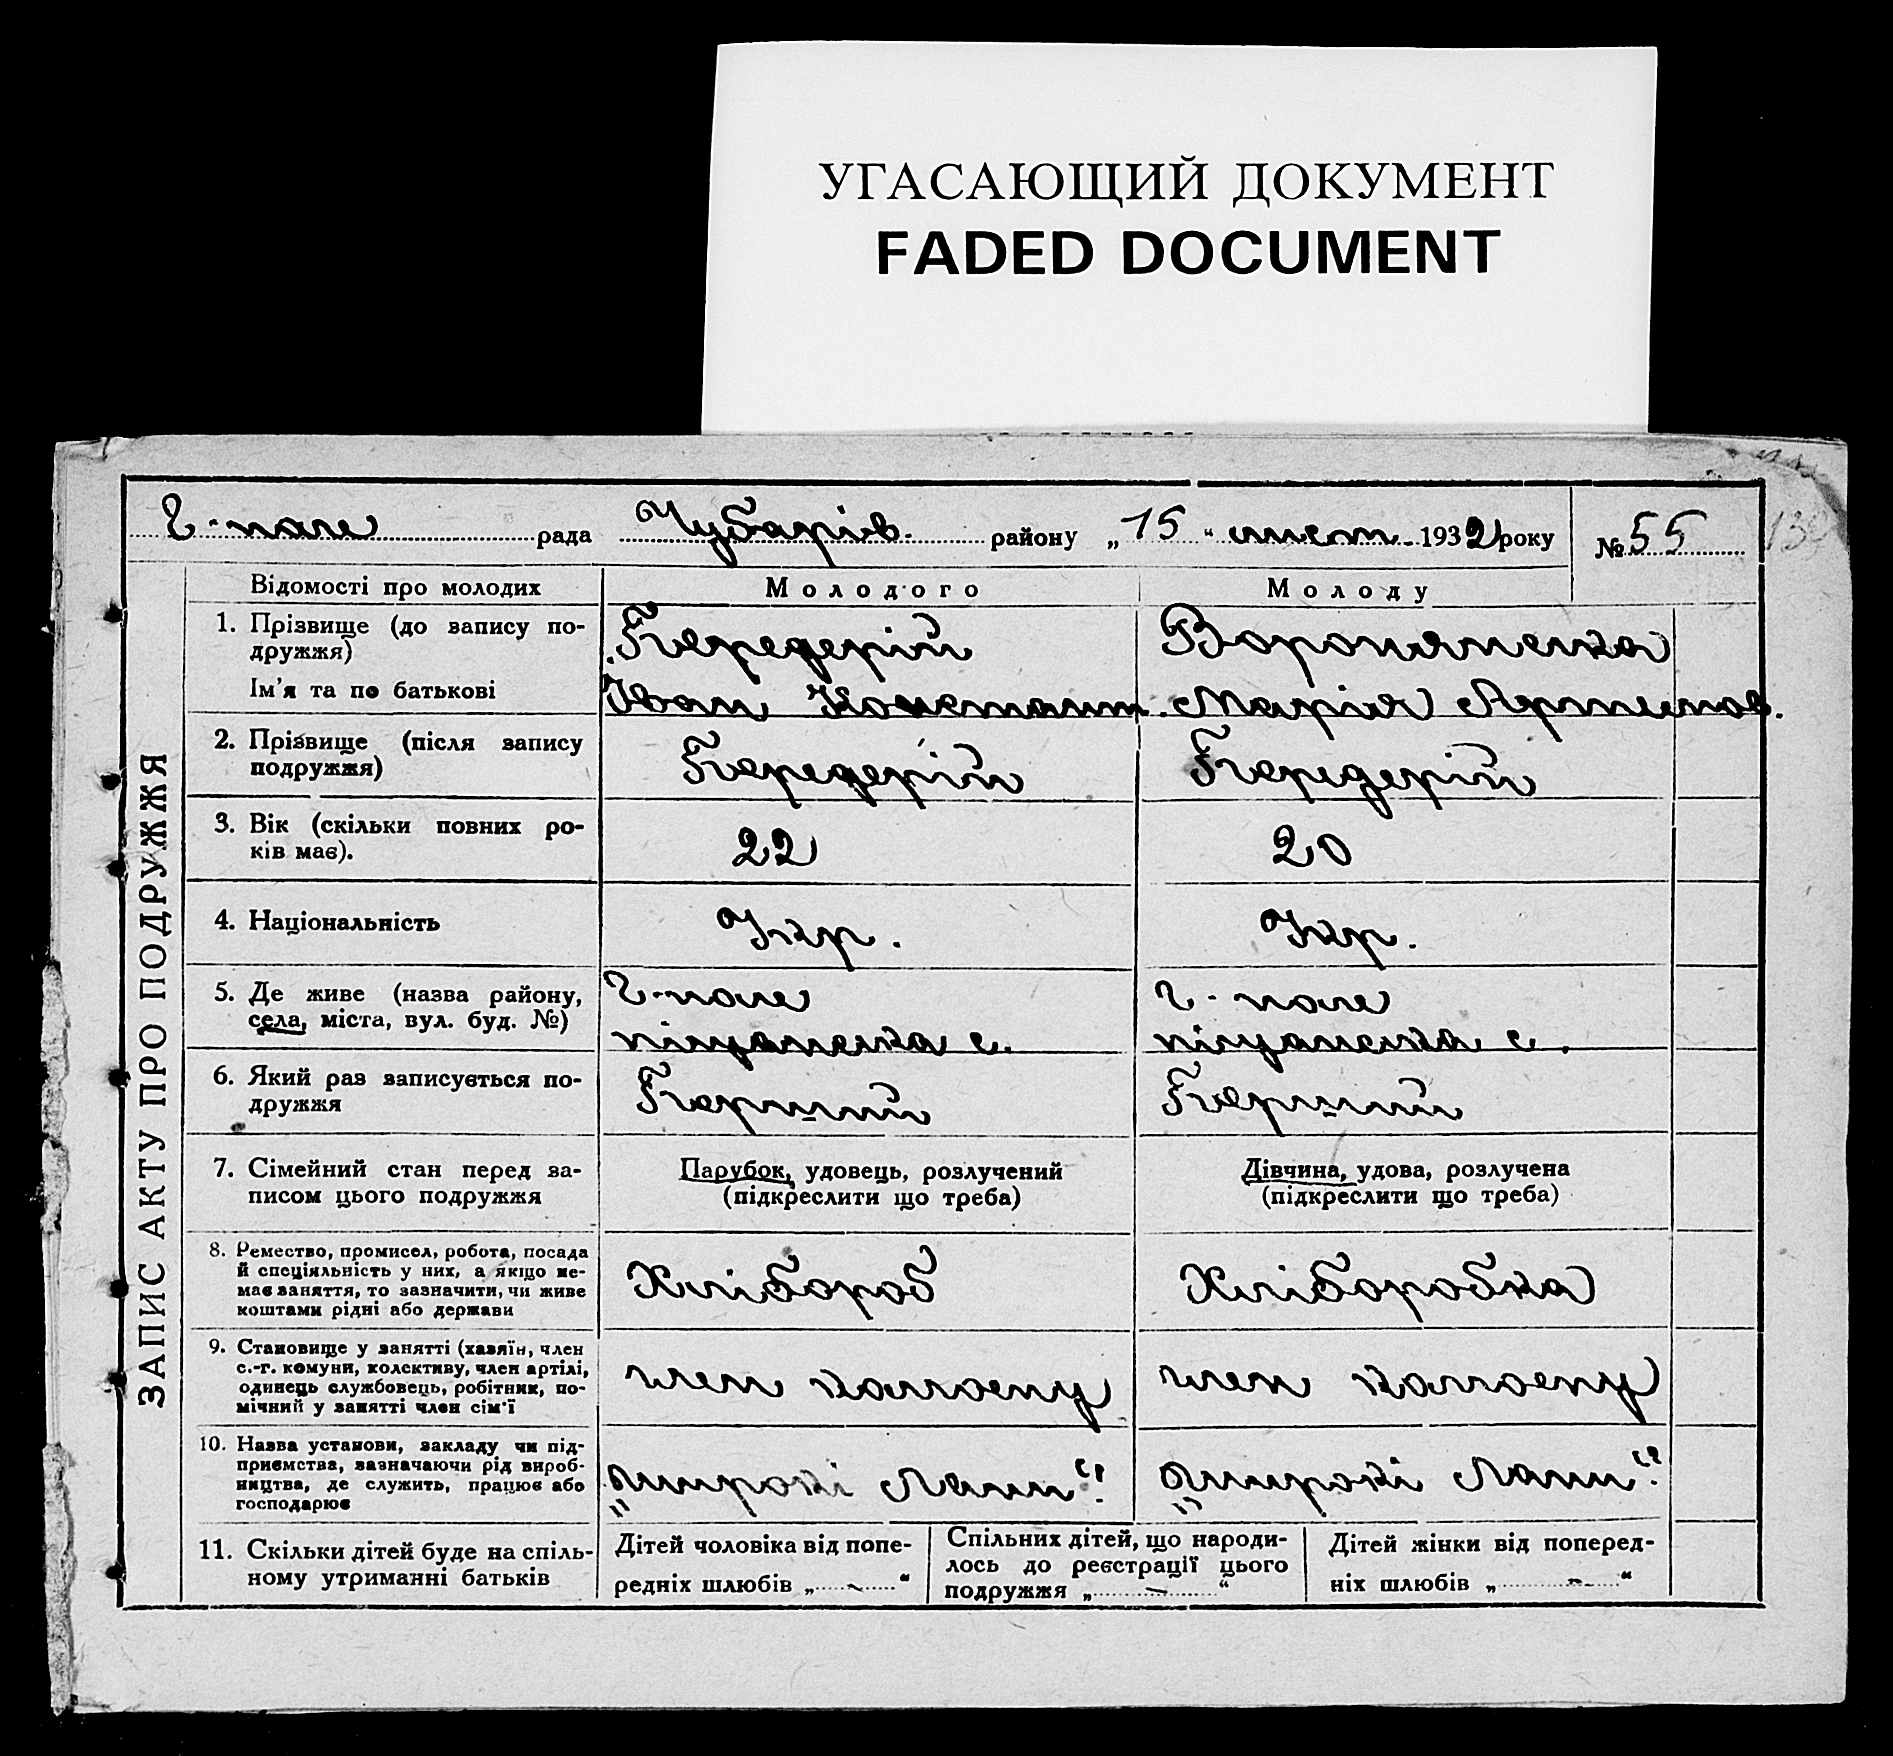 УГАСАЮЩИЙ ДОКУМЕНТ
FADED DOCUMENT
Г-поле рада Чубарів. району „15“ лист. 1932 року №55
ЗАПИС АКТУ ПРО ПОДРУЖЖЯ
Відомості про молодих Молодого Молоду
1. Прізвище (до запису по-
дружжя)
Передерій Вороняненко
Ім'я та по батькові
Іван Констант. Марія Артимов.
2. Прізвище (після запису
подружжя)
Передерій Передерій
3. Вік (скільки повних ро-
ків має).
22 20
4. Національність
Укр. Укр.
5. Де живе (назва району,
села, міста, вул. буд. №)
Г-поле Г-поле
піщанська с. піщанська с.
6. Який раз записується по-
дружжя
Перший Перший
7. Сімейний стан перед за-
писом цього подружжя
Парубок, удовець, розлучений
(підкреслити що треба)
Дівчина, удова, розлучена
(підкреслити що треба)
8. Ремество, промисел, робота, посада
й спеціяльність у них, а якщо не-
має заняття, то зазначити, чи живе
коштами рідні або держави
Хлібороб Хліборобка
9. Становище у занятті (хазяїн, член
с.-г. комуни, колективу, член артілі,
одинець службовець, робітник, по-
мічний у занятті член сім'ї
член колгоспу член колгоспу
10. Назва установи, закладу чи під-
приємства, зазначаючи рід вироб-
ництва, де служить, працює або
господарює
„широкі Лани“. „широкі Лани“.
11. Скільки дітей буде на спіль-
ному утриманні батьків
Дітей чоловіка від попе-
редніх шлюбів „ - “
Спільних дітей, що народи-
лось до реєстрації цього
подружжя „ - “
Дітей жінки від поперед-
ніх шлюбів „ - “